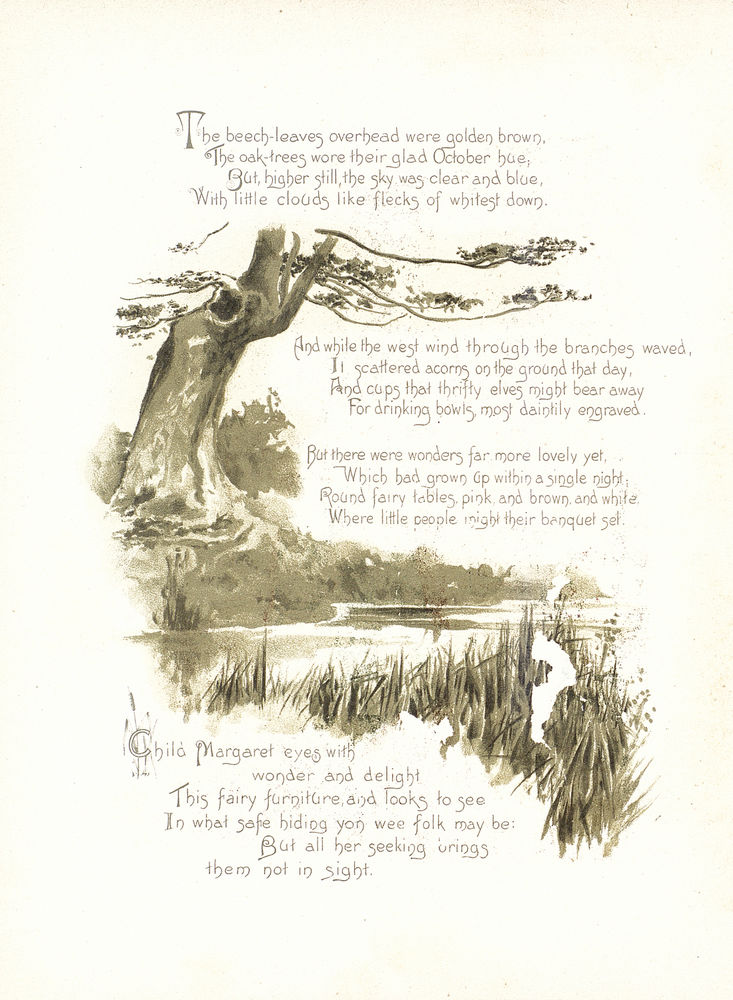 The beech-leaves overhead were golden brown,
The oak-trees wore their glad October hue;
But, higher still, the sky was clear and blue,
With little clouds like flecks of whitest down.
And while the west wind through the branches waved,
It scattered acorns on the ground that day,
And cups that thrifty elves might bear away
For drinking bowls, most daintily engraved.
But there were wonders far more lovely yet,
Which had grown up within a single night;
Round fairy tables, pink, and brown, and white,
Where little people might their banquet set.
Child Margaret eyes with
wonder and delight
This fairy furniture, and looks to see
In what safe hiding yon wee folk may be:
But all her seeking brings
them not in sight.